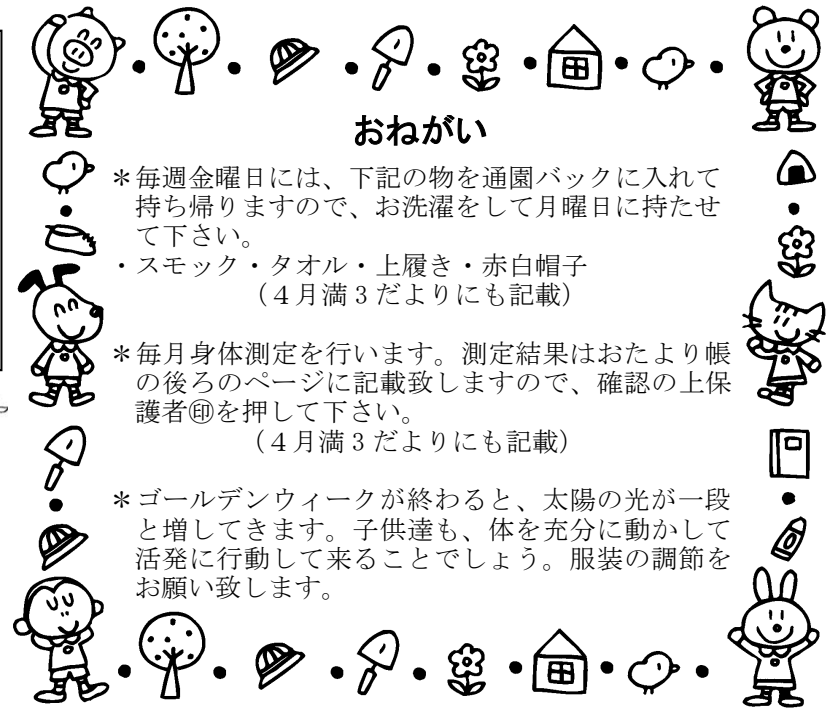 おねがい
＊毎週金曜日には、下記の物を通園バックに入れて
持ち帰りますので、お洗濯をして月曜日に持たせ
て下さい。
・スモック・タオル・上履き・赤白帽子
（４月満３だよりにも記載）
＊毎月身体測定を行います。測定結果はおたより帳
の後ろのページに記載致しますので、確認の上保
護者㊞を押して下さい。
（４月満３だよりにも記載）
＊ゴールデンウィークが終わると、太陽の光が一段
と増してきます。子供達も、体を充分に動かして
活発に行動して来ることでしょう。服装の調節を
お願い致します。